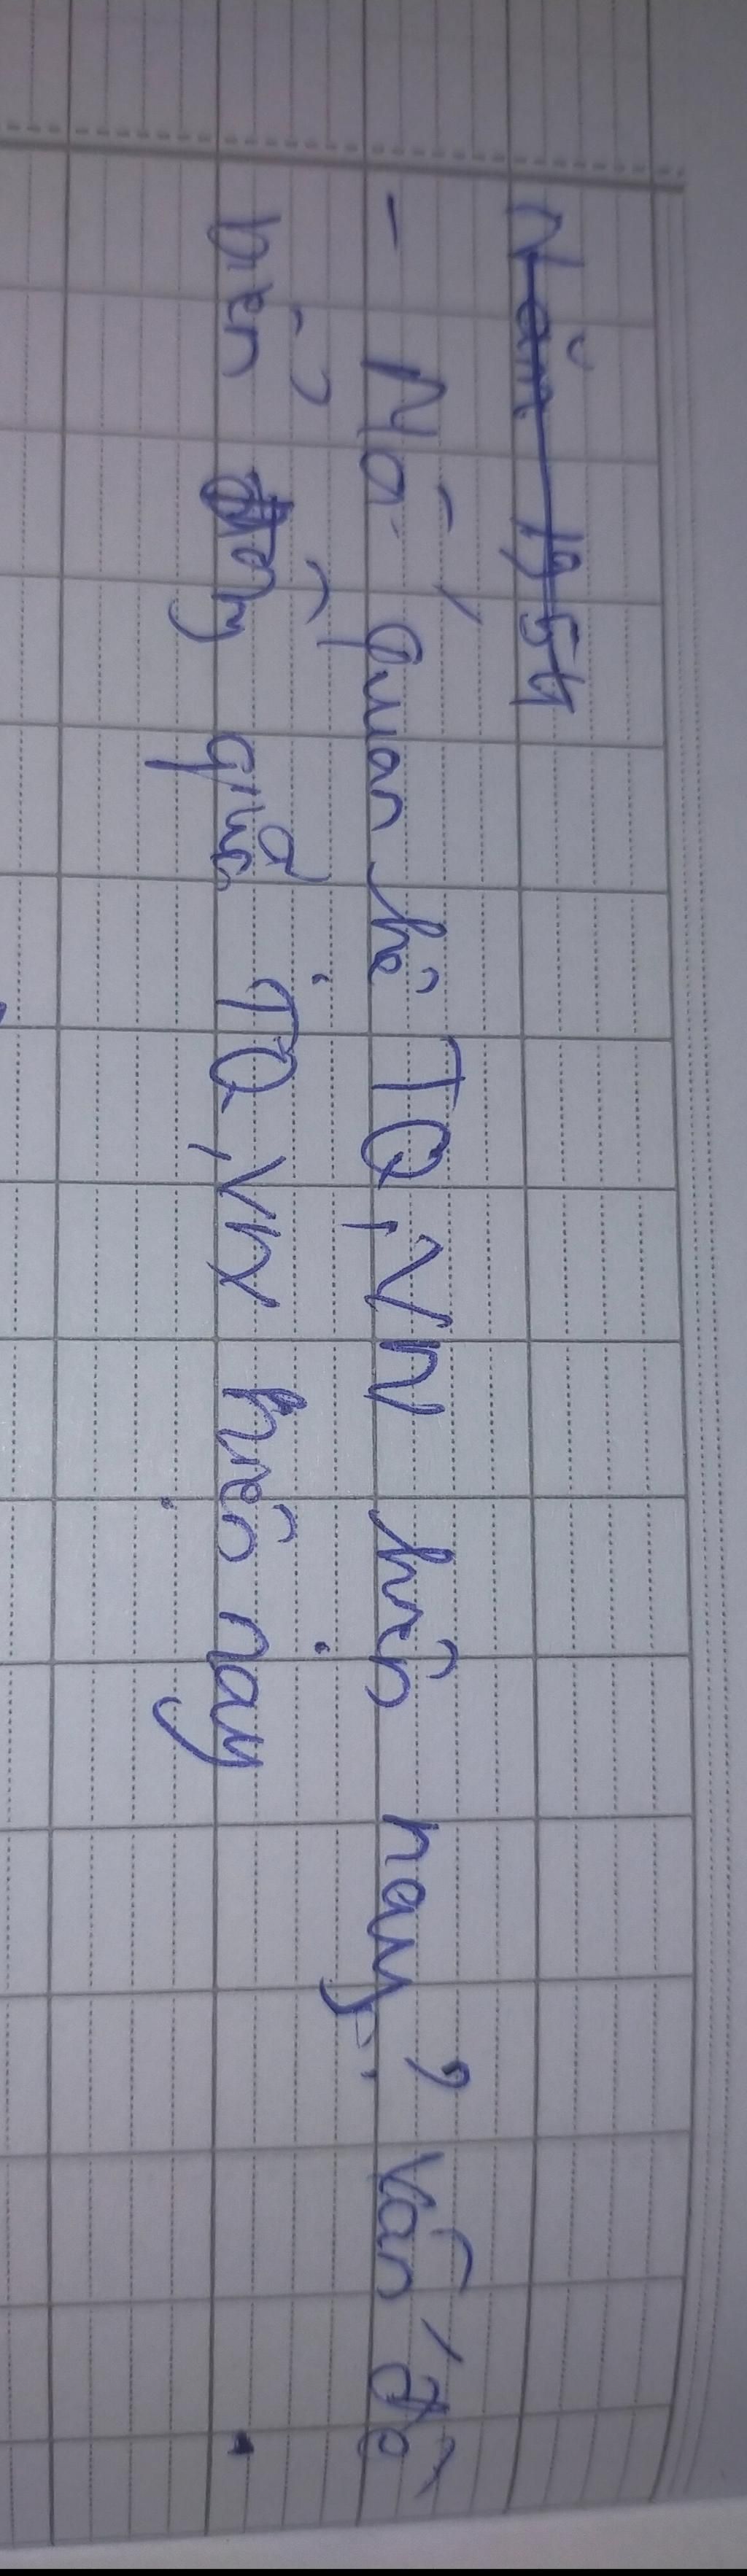 Năm 1954
- Mối quan hệ TQ, VN hiện nay? Vấn đề
biển đông giữa TQ, VN hiện nay